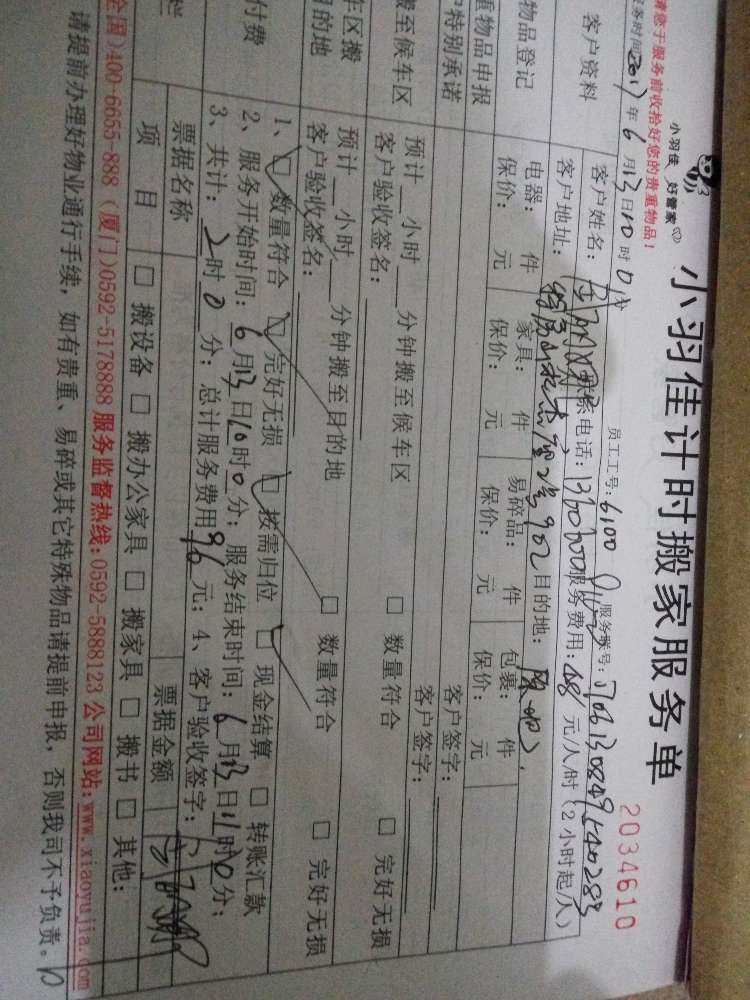 小羽佳 好管家
小羽佳计时搬家服务单
2034610
请您于服务前收拾好您的贵重物品！
员工工号：6100
服务账号：
务时间2017年6月13日10时0分
客户资料
客户姓名：
联系电话：
服务费用：48元/人/时（2小时起/人）
客户地址：
目的地：
物品登记
电器： 件 家具： 件 易碎品： 件 包裹： 件
保价： 元 保价： 元 保价： 元 保价： 元
重物品申报
客户签字：
特别承诺
客户签字：
搬至候车区
预计 小时 分钟搬至候车区 □ 数量符合 □ 完好无损
客户验收签名：
车区搬
的地
预计 小时 分钟搬至目的地 □ 数量符合 □ 完好无损
客户验收签名：
付费
1、□ 数量符合 □ 完好无损 □ 按需归位 □ 现金结算 □ 转账汇款
2、服务开始时间：6月13日10时0分；服务结束时间：6月13日11时0分；
3、共计：2时0分；总计服务费用96元；4、客户验收签字：
栏
票据名称
票据金额
项 目 □ 搬设备 □ 搬办公家具 □ 搬家具 □ 搬书 □ 其他：
全国)400-6655-888 (厦门)0592-5178888 服务监督热线:0592-5888123 公司网站:www.xiaoyujia.com
请提前办理好物业通行手续，如有贵重、易碎或其它特殊物品请提前申报，否则我司不予负责。